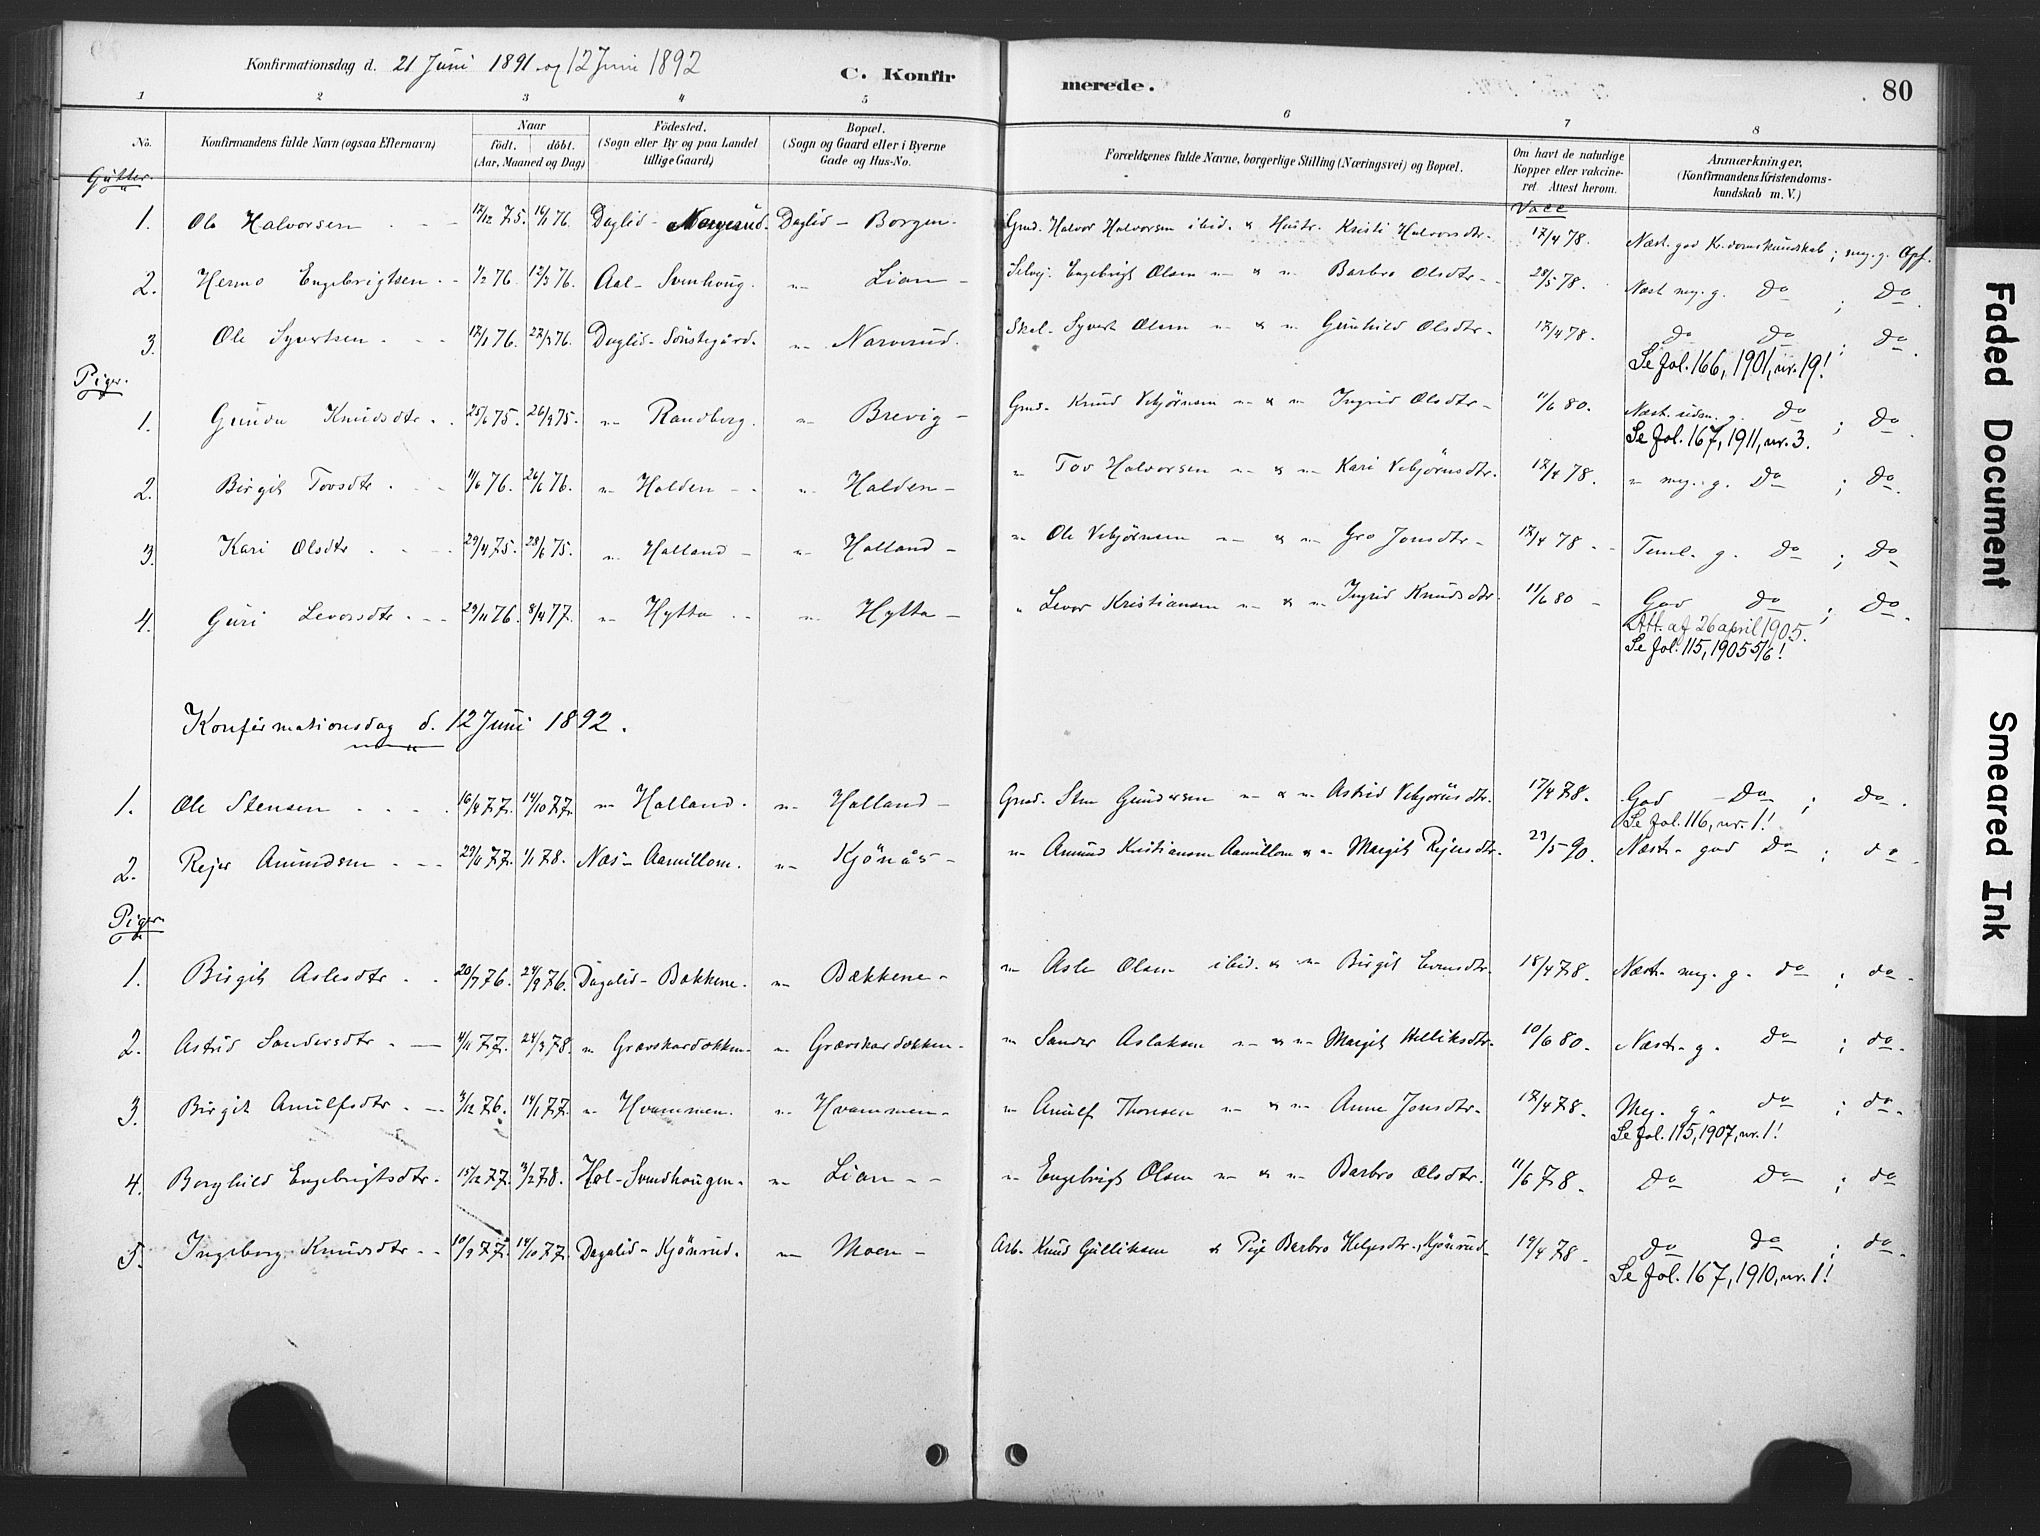 Konfirmationsdag d. 21 Juni 1891 og 12 Juni 1892 C. Konfirmerede. 80
1 2 3 4 5 6 7 8
No. Konfirmandens fulde Navn (ogsaa Efternavn) Naar født. døbt. (Aar, Maaned og Dag) Fødested. (Sogn eller By og paa Landet tillige Gaard) Bopæl. (Sogn og Gaard eller i Byerne Gade og Hus-No. Forældrenes fulde Navne, borgerlige Stilling (Næringsvei) og Bopæl. Om havt de naturlige Kopper eller vakcineret. Attest herom. Anmærkninger. (Konfirmandens Kristendomskundskab m. V.)
Gutter. Vacc
1. Ole Halvorsen 12/12 75. 16/1 76. Daglid - Daglid - Borgen. Gmd. Halvor Halvorsen ibid. & Hustr. Kristi Halvorsdtr. 17/4 78. Næst. god Kr.domskundskab; meg. g. Opf.
2. Hermo Engebrigtsen 1/2 76. 12/3 76. Aal - Svenhoug. " Lian - Selvej. Engebrigt Olsen " & " Barbro Olsdtr - 28/5 78. Næst meg. g. Do ; Do
3. Ole Syvertsen 17/1 76. 27/3 76. Daglid - Sønstegård. " Narverud. Skol - Syvert Olsen " & " Gunhild Olsdtr - 17/4 78. Do Do ; Do.
Se fol. 166, 1901, nr. 19!
Piger.
1. Gunda Knudsdtr. 25/6 75. 26/9 75. " Randberg. " Brevig - Gmd. Knud Vebjørnsen " & " Ingrid Olsdtr - 11/6 80. Næst. udm. g. Do ; Do.
Se fol. 167, 1911, nr. 3.
2. Birgit Tovsdtr. 11/6 76. 26/6 76. " Holden - " Holden - " Tov Halvorsen " & " Kari Vebjørnsdtr. 17/4 78. " meg. g. Do ; Do.
3. Kari Olsdtr. 29/4 75. 28/6 75. " Halland - " Halland - " Ole Vebjørnsen " & " Gro Jonsdtr - 17/4 78 - Teml. g. Do ; Do
4. Guri Levorsdtr. 29/11 76. 8/4 77. " Hytta - " Hytta - " Levor Kristiansen " & " Ingrid Knudsdtr. 11/6 80 - God Do ; Do.
Att. af 26 april 1905.
Se fol. 115, 1905 5/6!
Konfirmationsdag d. 12 Juni 1892.
1. Ole Stensen 16/8 77. 14/10 77. " Halland. " Halland - Gmd. Sten Gundersen " & " Astrid Vebjørnsdtr. 17/4 78. God - Do ; Do.
Se fol. 116, nr. 1!
2. Rejer Amundsen 29/11 77. 1/1 78. Næs - Aamillom. " Kjønås - " Amund Kristiansen Aamillom & " Margit Rejersdtr. 23/5 90. Næst - god Do ; do -
Piger
1. Birgit Aslesdtr. 20/7 76. 24/9 76. Dagalid - Bakkene. " Bækkene - " Asle Olsen ibid. & " Birgit Evensdtr. 18/4 78. Næst. meg. g. do ; do.
2. Astrid Sandersdtr. 4/11 77. 24/3 78. " Grævskardokken. " Grævskardokken. " Sander Aslaksen " & " Margit Helliksdtr. 10/6 80. Næst. g. Do ; do.
3. Birgit Arnulfsdtr. 3/12 76. 14/1 77. " Hvammen. " Hvammen - " Arnulf Thoresen " & " Anne Jonsdtr. 17/4 78. Meg. g. do ; do.
Se fol. 115, 1907, nr. 1!
4. Borghild Engebrigtsdtr. 15/12 77. 3/2 78. Hol - Svendhougen. " Lian - " Engebrigt Olsen " & " Barbro Olsdtr. 11/6 78. Do Do ; do
5. Ingeborg Knudsdtr. 10/9 77. 14/10 77. Dagalid - Kjønrud. " Moen - Arb. Knud Gulliksen & Pige Barbro Helgesdtr., Kjønrud - 19/4 78. Do Do ; do.
Se fol. 167, 1910, nr. 1!
Faded Document
Smeared Ink